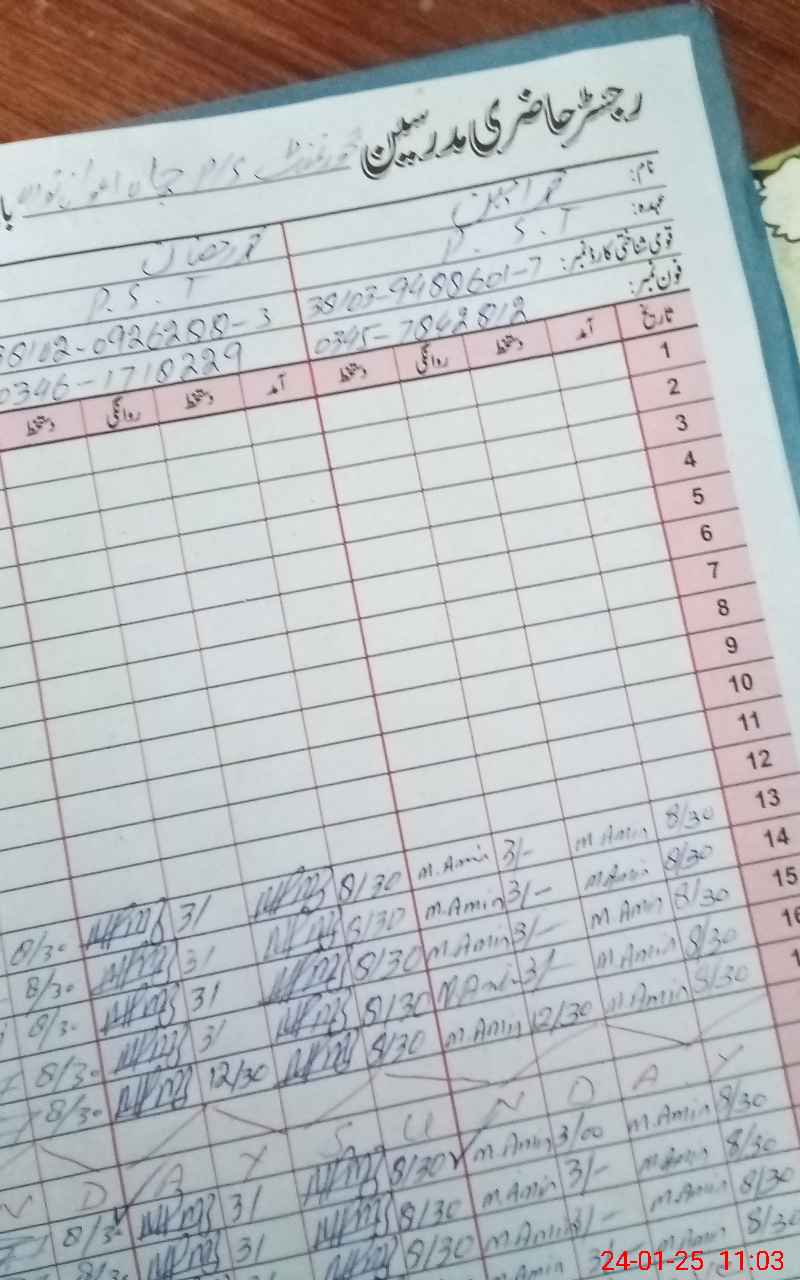 رجسٹر حاضری مدرسین گورنمنٹ P/S چاہ
نام: محمد امین محمد رمضان
عہدہ: P.S.T P.S.T
قومی شناختی کارڈ نمبر: 38103-9488601-7 38102-0926288-3
فون نمبر: 0345-7842812 0346-1718229
تاریخ آمد دستخط روانگی دستخط آمد دستخط روانگی دستخط
1
2
3
4
5
6
7
8
9
10
11
12
13 8/30 M.Amin 3/- M.Amin 8/30 3/ 8/30
14 8/30 M.Amin 3/- M.Amin 8/30 3/ 8/30
15 8/30 M.Amin 3/- M.Amin 8/30 3/ 8/30
16 8/30 M.Amin 3/- M.Amin 8/30 3/ 8/30
1 8/30 M.Amin 12/30 M.Amin 8/30 12/30 8/30
S U N D A Y
N D A Y
8/30 M.Amin 3/00 M.Amin 8/30 3/ 8/30
8/30 M.Amin 3/- M.Amin 8/30 3/ 8/30
8/30 M.Amin 3/- M.Amin 8/30
8/30 M.Amin 3/- M.Amin
24-01-25 11:03